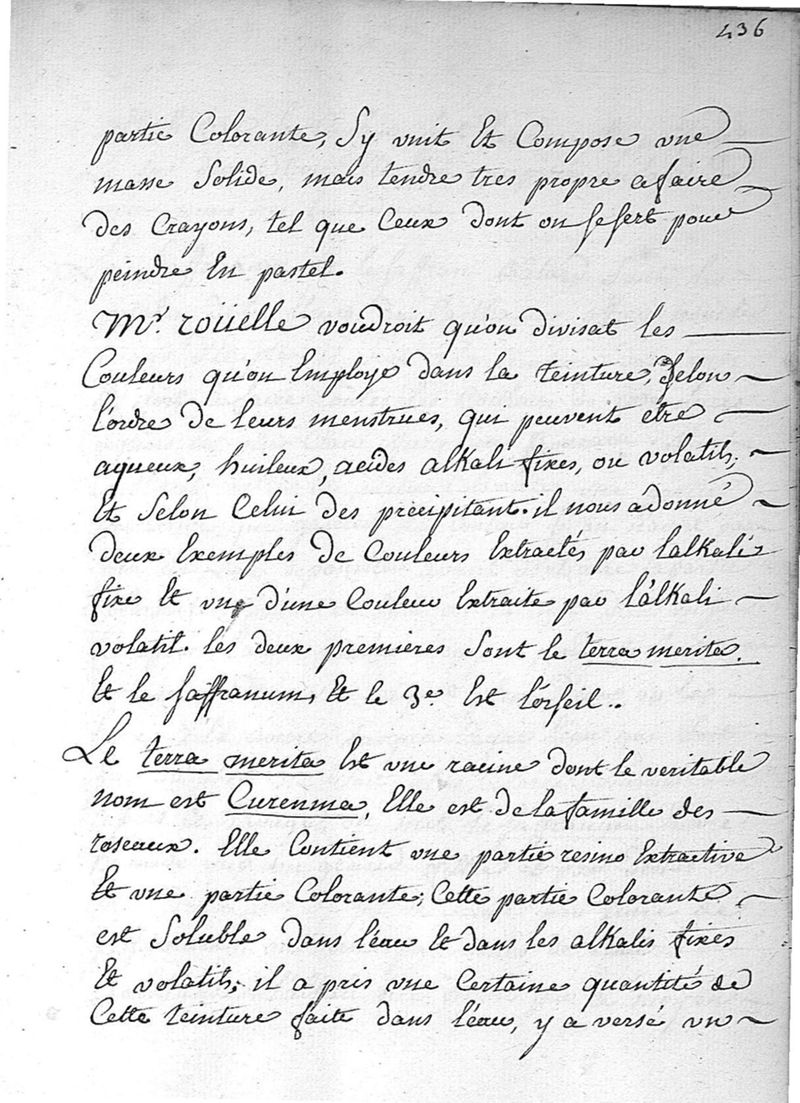 436
partie Colorante, Sy unit Et Compose une
masse Solide, mais tendre tres propre a faire
des Crayons, tel que Ceux dont on se sert pour
peindre En pastel.
Mr. roüelle voudroit qu'on divisat les
Couleurs qu'on Employe dans la teinture, Selon
l'ordre de leurs menstrues, qui peuvent etre
aqueux, huileux, acides alkali fixes, ou volatils,
Et Selon Celui des précipitant. il nous a donné
deux Exemples de Couleurs Extraites par lalkali
fixe Et une d'une Couleur Extraite par l'alkali
volatil. les deux premieres Sont le terra merita.
Et le saffranum, Et le 3e. Est l'orseil..
Le terra merita Est une racine dont le veritable
nom est Curcuma, Elle est de la famille des
roseaux. Elle Contient une partie resino Extractive
Et une partie Colorante; Cette partie Colorante
est Soluble dans l'eau Et dans les alkalis fixes
Et volatils; il a pris une Certaine quantité de
Cette teinture faite dans l'eau, y a versé un